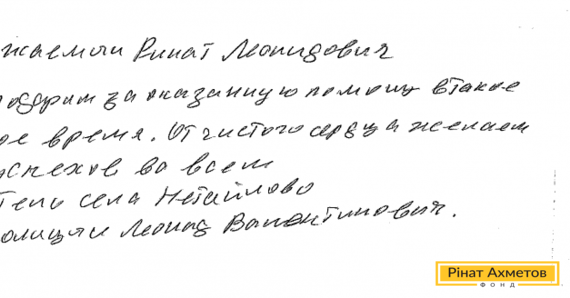 жаемый Ринат Леонидович
годарим за оказанную помощь в такое
ое время. От чистого сердца желаем
успехов во всем
тель села Нетайлово
Леонид Валентинович.
Рінат Ахметов
ФОНД